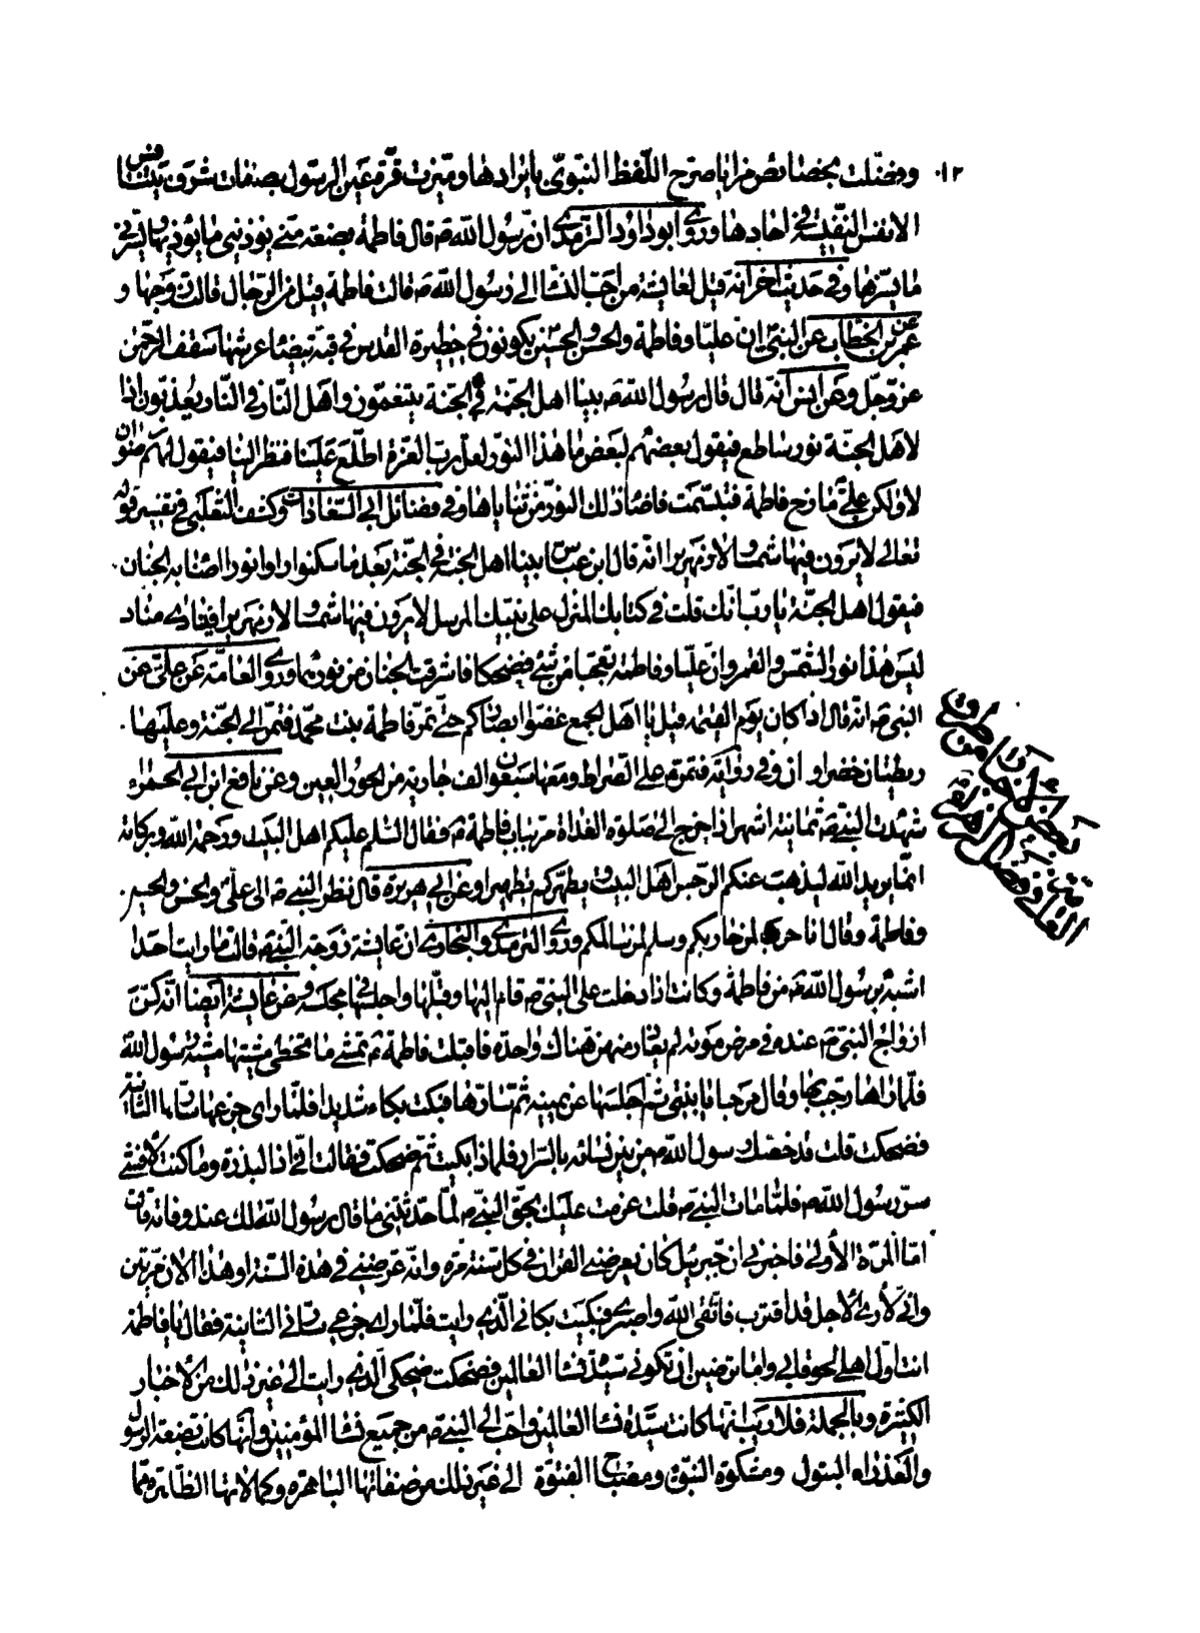 ١٢٠
وفضّلت بخصائص مزايا صرح اللّفظ النبويّ بايرادها وميّزت قرّة عين الرسول بصفات شرف يتنافس
الانفس النفيسة في اهادها وروى ابوداود الترمذي ان رسول الله ص قال فاطمة بضعة منّي يؤذيني ما يؤذيها ويسرّني
ما يسرّها وفي حديث اخر انه قيل لعايشة من احب النسا الى رسول الله ص قالت فاطمة قيل من الرجال قالت زوجها و
عن عمر بن الخطاب عن النبي ان عليّا وفاطمة والحسن والحسين يكونون في حظيرة القدس في قبة بيضا عرشها سقف الرحمن
عزّوجلّ وعن ابن انه قال قال رسول الله ص بينا اهل الجنة في الجنة يتنعمون واهل النار في النار يعذبون اذا
لاهل الجنّة نور ساطع فيقول بعضهم لبعض ما هذا النور لعل رب العزة اطّلع علينا فنظر الينا فيقول لهم رضوان
لا ولكن علي ع مازح فاطمة فتبسّمت فاضاء ذلك النور من ثناياها وفي فضائل ابي السعادات وكشف الثعلبي في تفسير قوله
تعالى لا يرون فيها شمسا ولا زمهريرا انه قال ابن عباس بينا اهل الجنة في الجنّة بعد ما سكنوا راوا نورا اضاء به الجنان
فيقول اهل الجنّة يا رب انك قلت في كتابك المنزل على نبيك المرسل لا يرون فيها شمسا ولا زمهريرا فينادي مناد
ليس هذا نور الشمس والقمر وانّ عليّا وفاطمة تعجبا من شئ فضحكا فاشرقت الجنان من نورهما وروى العامّة عن علي ع عن
النبي ص انه قال اذا كان يوم القيمة قيل يا اهل الجمع غضّوا ابصاركم حتى تمرّ فاطمة بنت محمّد فتمر الى الجنّة وعليها
ريطتان خضراوان وفي رواية فتمر على الصراط ومعها سبعون الف جارية من الحور العين وعن نافع ابن ابي الحمراء
شهدت النبي ص ثمانية اشهر اذا خرج الى صلوة الغداة مرّ بباب فاطمة ع فقال السّلم عليكم اهل البيت ورحمة الله وبركاته
انّما يريد الله ليذهب عنكم الرجس اهل البيت ويطهركم تطهيرا وعن ابي هريرة قال نظر النبي ص الى عليّ والحسن والحسين
وفاطمة وقال انا حرب لمن حاربكم وسلم لمن سالمكم وروى الترمذي والبخاري ان عايشة زوجة النبي ص قالت ما رايت احدا
اشبه برسول الله ص من فاطمة وكانت اذا دخلت على النبي ص قام اليها وقبّلها واجلسها في مجلسه وعن عايشة ايضا انه كنّ
ازواج النبي ص عنده في مرض موته لم يغادر منهن هناك واحدة فاقبلت فاطمة ع تمشي ما تخطي مشيتها مشية رسول الله
فلمّا راها رحّب بها وقال مرحبا يا بنتي ثم اجلسها عن يمينه ثم سارّها فبكت بكاء شديدا فلمّا راى جزعها سارها الثانية
فضحكت قلت قد خصّك رسول الله ص من بين نسائه بالسّرار فلماذا بكيت ثم ضحكت فقالت انّي اذا لبذرة وما كنت لافشي
سرّ رسول الله ص فلمّا مات النبي ص قلت عزمت عليك بحقّ النبي ص لمّا حدّثتني ما قال رسول الله لك عند وفاته قالت
امّا المرّة الأولى فاخبرني ان جبرئيل كان يعرضني القران في كل سنة مرة وانّه عرضني في هذه السّنة او هذا الان مرّتين
وانّي لأرى الاجل قد اقترب فاتّقي الله واصبري فبكيت بكائي الّذي رايت فلمّا راى جزعي سارّني الثانية فقال يا فاطمة
انت اول اهلي لحوقا بي واما ترضين ان تكوني سيّدة نساء العالمين فضحكت ضحكي الّذي رايت الى غير ذلك من الاخبار
الكثيرة وبالجملة فلا ريب انها كانت سيّدة نساء العالمين واحب الى النبي ص من جميع نساء المؤمنين وانها كانت بضعة الرسول
والعذراء البتول ومشكوة النبوة ومصباح الفتوّة الى غير ذلك من صفاتها الباهرة وكمالاتها الظاهرة ممّا